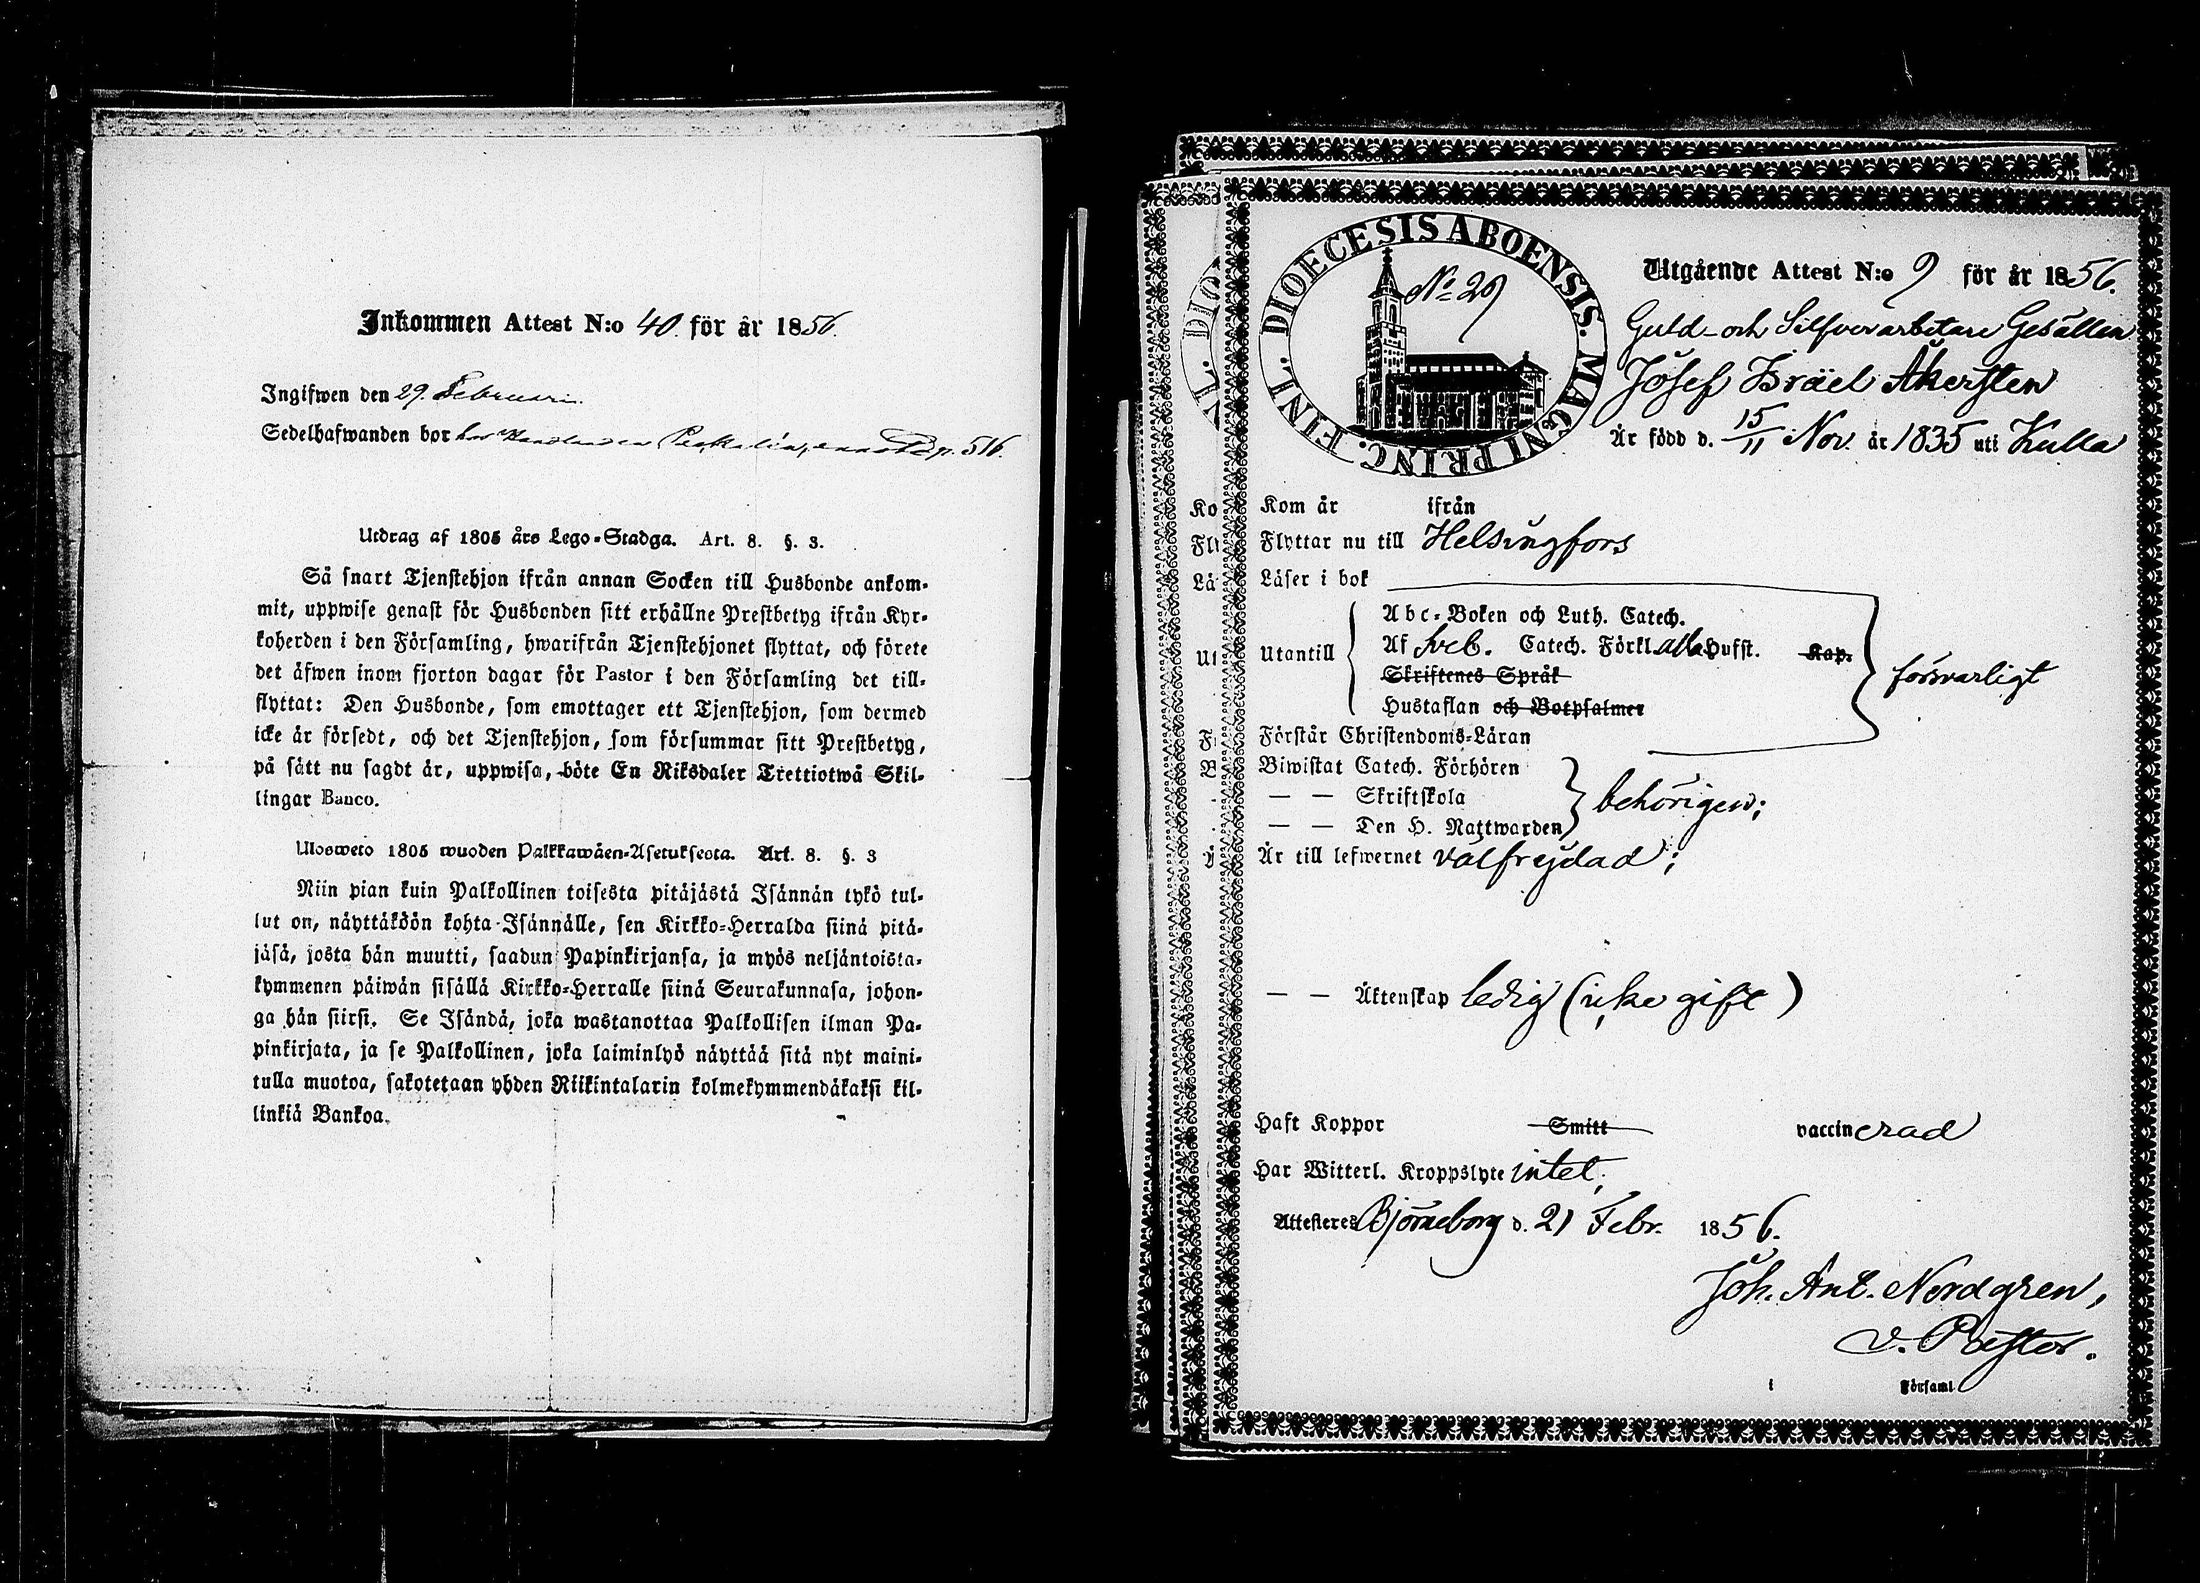 Inkommen Attest N:o 40. för år 1856.
Ingifwen den 29. Februari.
Sedelhafwanden bor hos Handlanden p. 516.
Utdrag af 1805 års Lego-Stadga. Art. 8. §. 3.
Så snart Tjenstehjon ifrån annan Socken till Husbonde ankom-
mit, uppwise genast för Husbonden sitt erhållne Prestbetyg ifrån Kyr-
koherden i den Församling, hwarifrån Tjenstehjonet flyttat, och förete
det äfwen inom fjorton dagar för Pastor i den Församling det till-
flyttat: Den Husbonde, som emottager ett Tjenstehjon, som dermed
icke är försedt, och det Tjenstehjon, som försummar sitt Prestbetyg,
på sätt nu sagdt är, uppwisa, böte En Riksdaler Trettiotwå Skil-
lingar Banco.
Ulosweto 1805 wuoden Palkkawäen-Asetuksesta. Art. 8. §. 3
Niin pian kuin Palkollinen toisesta pitäjästä Isännän tykö tul-
lut on, näyttäköön kohta Isännälle, sen Kirkko-Herralda siinä pitä-
jäsä, josta hän muutti, saadun Papinkirjansa, ja myös neljäntoista-
kymmenen päiwän sisällä Kirkko-Herralle siinä Seurakunnasa, johon-
ga hän siirsi. Se Isändä, joka wastanottaa Palkollisen ilman Pa-
pinkirjata, ja se Palkollinen, joka laiminlyö näyttää sitä nyt maini-
tulla muotoa, sakotetaan yhden Riikintalarin kolmekymmendäkaksi kil-
linkiä Bankoa.
DIOECESIS ABOENSIS. MAGNI PRINC. FINL.
No 29
Utgående Attest N:o 9 för år 1856.
Guld- och Silfverarbetare Gesällen
Josef Israël Åkersten
Är född d. 15/11 Nov. år 1835 uti Kulla
Kom år ifrån
Flyttar nu till Helsingfors
Läser i bok
Utantill
Abc-Boken och Luth. Catech.
Af Sveb. Catech. Förkl. alla Hufst. Kap.
Skriftenes Språk
Hustaflan och Botpsalmer
försvarligt
Förstår Christendoms-Läran
Biwistat Catech. Förhören
— — Skriftskola
behörigen;
— — Den H. Nattwarden
Är till lefwernet välfrejdad;
— — Äktenskap ledig (icke gift)
Haft Koppor Smitt vaccinerad
Har Witterl. Kroppslyte intet;
Attesteres Björneborg d. 21 Febr. 1856.
Joh. Ant. Nordgren,
v. Pastor.
i Församl